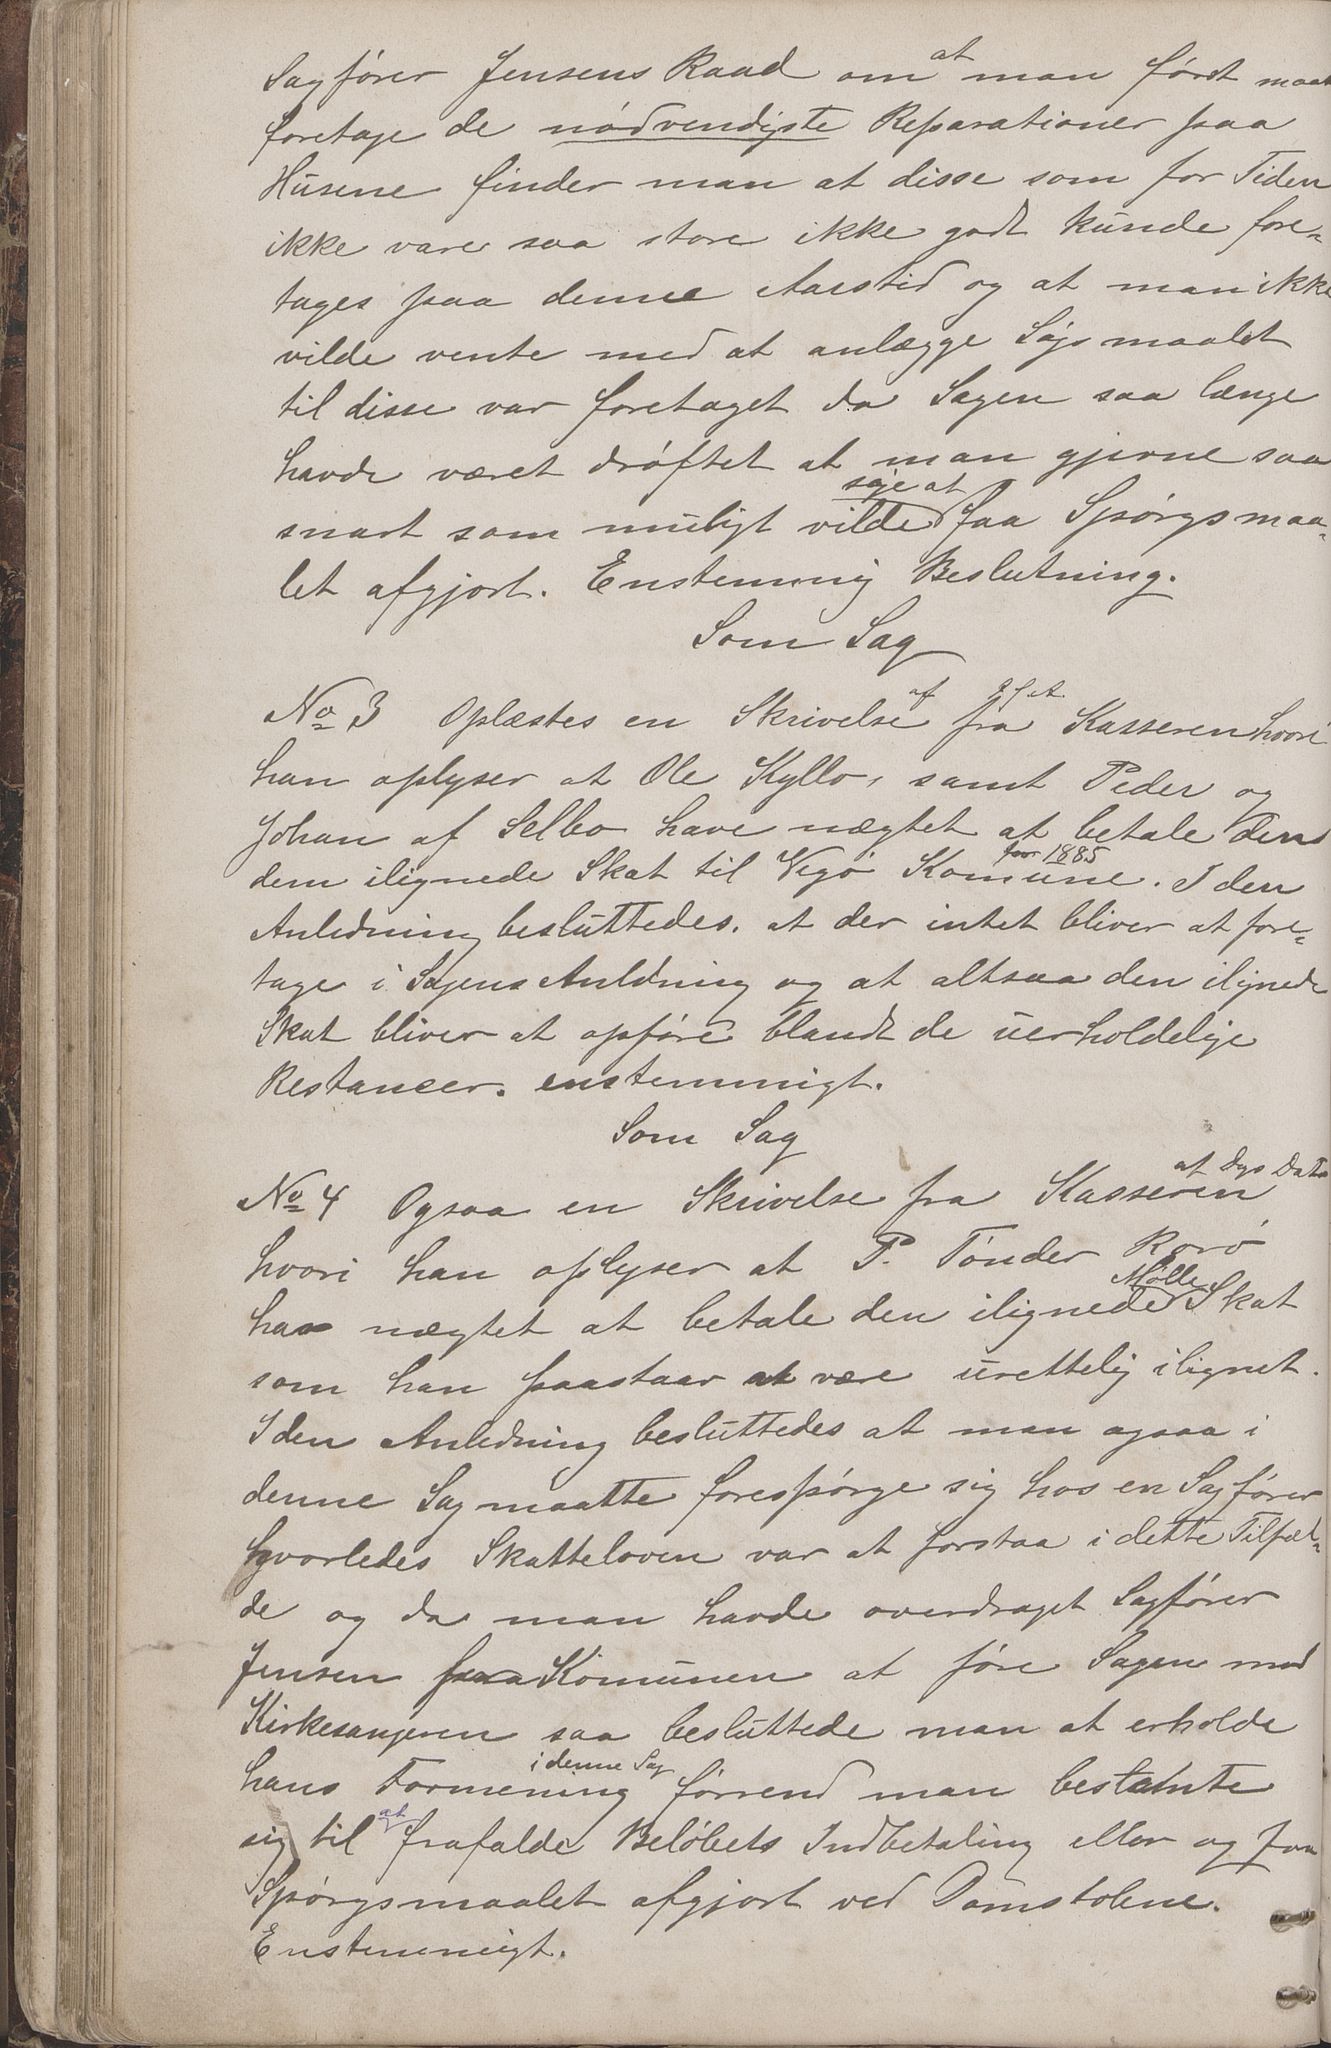 Sagfører Jensens Raad om at man først maatte
foretage de nødvendigste Reparationer paa
Husene finder man at disse som for Tiden
ikke vare saa store ikke godt kunde fore-
tages paa denne Aarstid og at man ikke
vilde vente med at anlægge Søgsmaalet
til disse var foretaget da Sagen saa længe
havde været drøftet at man gjerne saa
snart som muligt vilde søge at faa Spørgsmaa-
let afgjort. Enstemmig Beslutning.
Som Sag
No 3 Oplæstes en Skrivelse af fra Kasseren hvori
han oplyser at Ole Kyllo, samt Peder og
Johan af Selbo have nægtet at betale den
dem ilignede Skat til Vegø Komune for 1885. I den
Anledning besluttedes. at der intet bliver at fore-
tage i Sagens Anldning og at altsaa den ilignede
Skat bliver at opføre blandt de uerholdelige
Restancer. enstemmigt.
Som Sag
No 4 Ogsaa en Skrivelse fra Kasseren at Dgs Dato
hvori han oplyser at P. Tønder Rorø
har nægtet at betale den ilignede Mølle Skat
som han paastaar at være urettelig ilignet.
I den Anledning besluttedes at man ogsaa i
denne Sag maatte forespørge sig hos en Sagfører
hvorledes Skatteloven var at forstaa i dette Tilfæl-
de og da man havde overdraget Sagfører
Jensen paa Komunen at føre Sagen mod
Kirkesangeren saa besluttede man at erholde
hans Formening i denne Sag førrend man bestemte
sig til at frafalde Beløbets Indbetaling eller og faa
Spørgsmaalet afgjort ved Domstolene.
Enstemmigt.